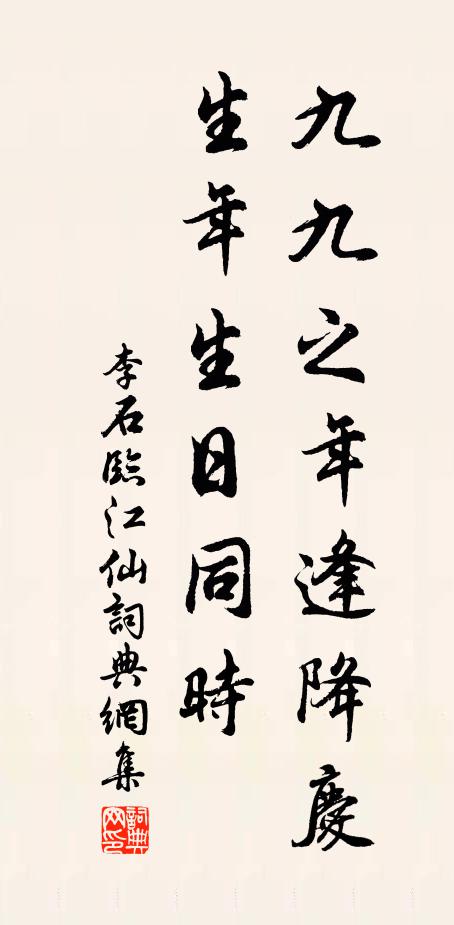 九九之年逢降慶
生年生日同時
李石臨江仙詞典網集
詞典网印